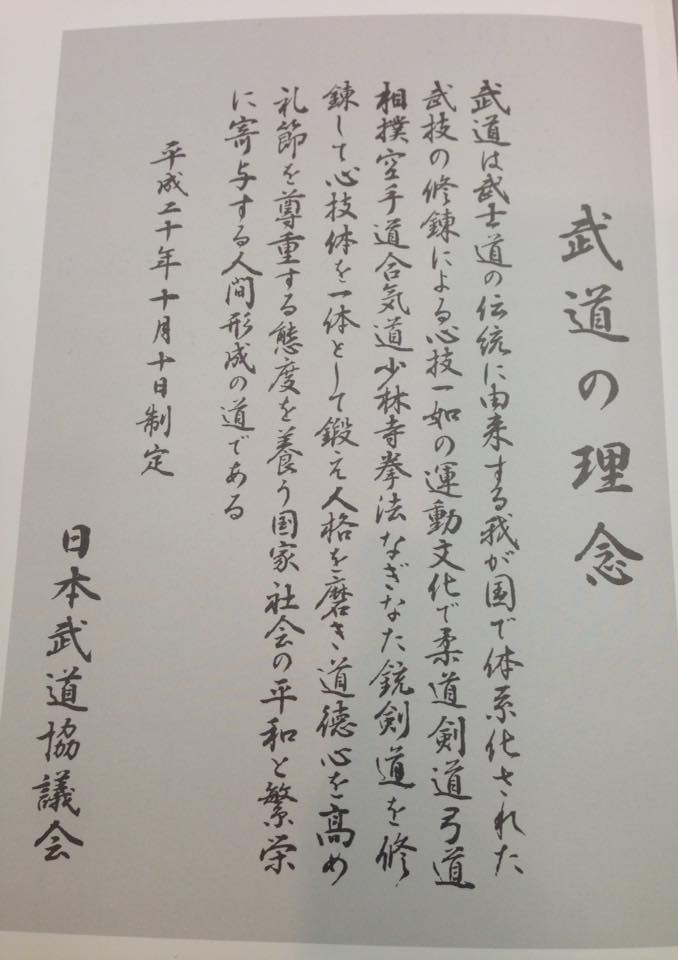 武道の理念
武道は武士道の伝統に由来する我が国で体系化された
武技の修錬による心技一如の運動文化で柔道剣道弓道
相撲空手道合気道少林寺拳法なぎなた銃剣道を修
錬して心技体を一体として鍛え人格を磨き道徳心を高め
礼節を尊重する態度を養う国家社会の平和と繁栄
に寄与する人間形成の道である
平成二十年十月十日制定
日本武道協議会